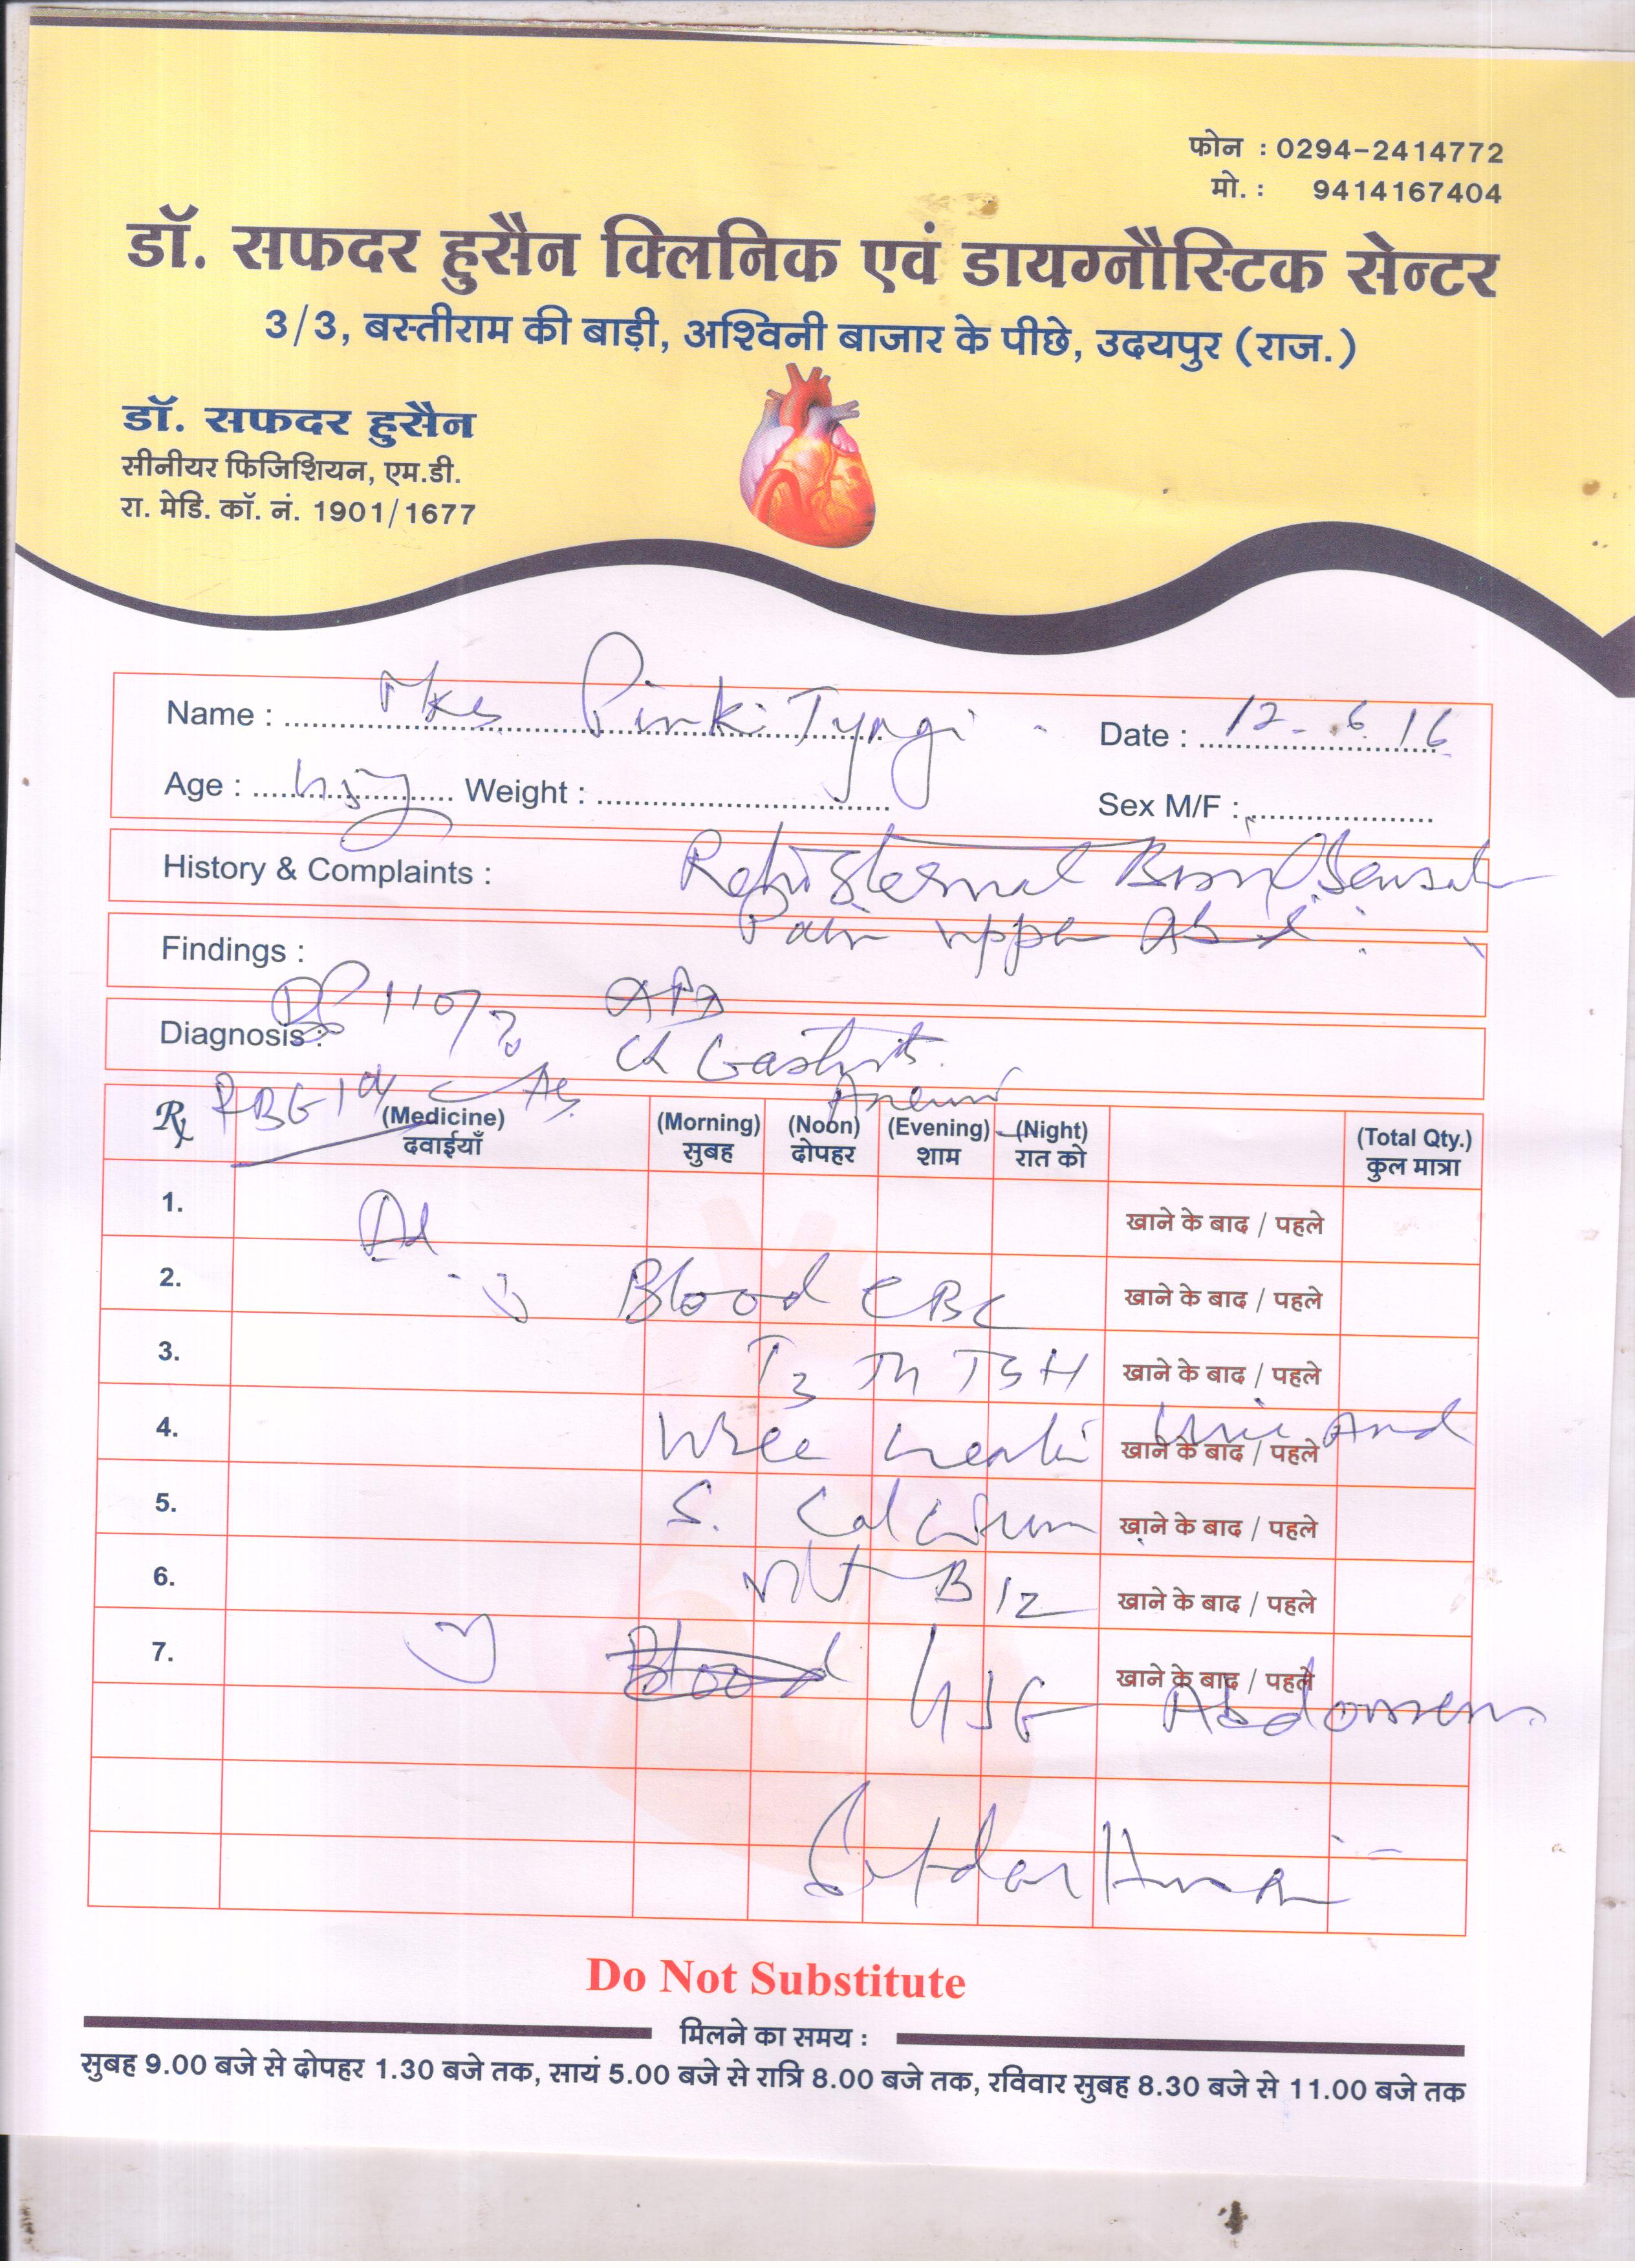 फोन : 0294-2414772
मो. : 9414167404
डॉ. सफदर हुसैन क्लिनिक एवं डायग्नौस्टिक सेन्टर
3/3, बस्तीराम की बाड़ी, अश्विनी बाजार के पीछे, उदयपुर (राज.)
डॉ. सफदर हुसैन
सीनीयर फिजिशियन, एम.डी.
रा. मेडि. कॉ. नं. 1901/1677
Name : Mrs Pinki Tyagi Date : 12-6-16
Age : Weight : Sex M/F :
History & Complaints : Retrosternal
Pain upper Abd
Findings :
110/70 APD
Diagnosis : Gastritis
RBG 104
Rx (Medicine) (Morning) (Noon) (Evening) (Night) (Total Qty.)
दवाईयाँ सुबह दोपहर शाम रात को कुल मात्रा
1. Ad खाने के बाद / पहले
2. Blood CBC खाने के बाद / पहले
3. T3 T4 TSH खाने के बाद / पहले
4. Uric Acid खाने के बाद / पहले
5. S. Calcium खाने के बाद / पहले
6. Vit B12 खाने के बाद / पहले
7. Blood USG Abdomen खाने के बाद / पहले
Safdar Husain
Do Not Substitute
मिलने का समय :
सुबह 9.00 बजे से दोपहर 1.30 बजे तक, सायं 5.00 बजे से रात्रि 8.00 बजे तक, रविवार सुबह 8.30 बजे से 11.00 बजे तक